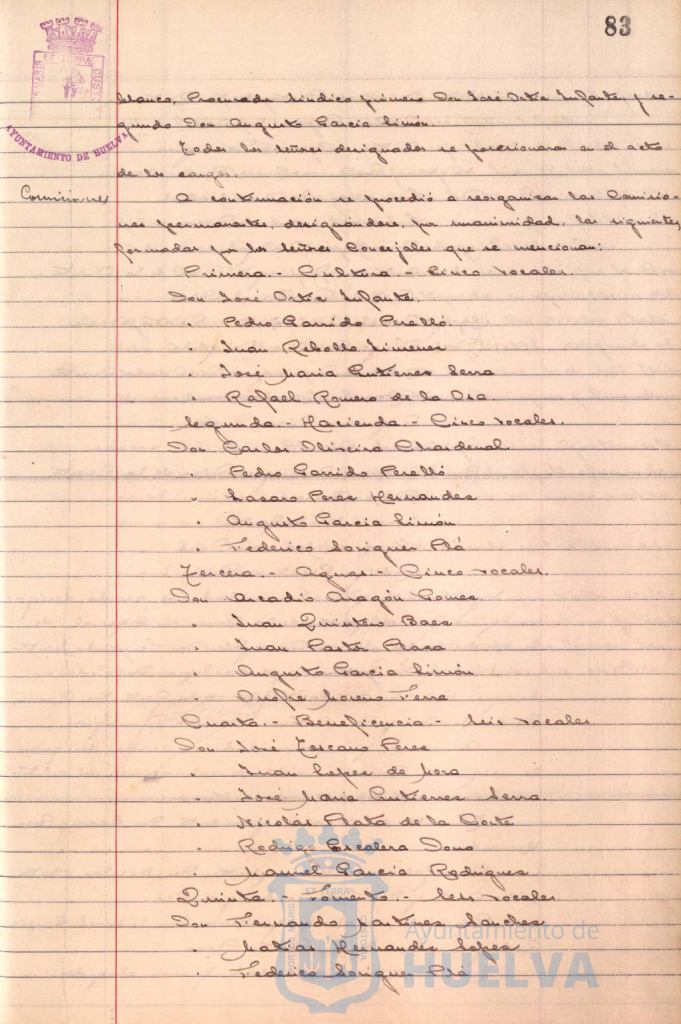 83
PORTUS MARIS ET TERRÆ CUSTODIA
AYUNTAMIENTO DE HUELVA
blanco, Procurador Síndico primero Don José Ortiz Infante, y se-
gundo Don Augusto García Simón.
Todos los señores designados se posesionaron en el acto
de los cargos.
Comisiones
A continuación se procedió a reorganizar las Comisio-
nes permanentes, designándose, por unanimidad, las siguientes,
formadas por los señores Concejales que se mencionan:
Primera.- Cultura.- Cinco vocales.
Don José Ortiz Infante.
" Pedro Garrido Perelló.
" Juan Rebollo Jimenez
" José Maria Gutierrez Serra
" Rafael Romero de la Osa.
Segunda.- Hacienda.- Cinco vocales.
Don Carlos Oliveira Chardenal
" Pedro Garrido Perelló
" Lazaro Perez Hernandez
" Augusto García Simón
" Federico Soriguer Plá
Tercera.- Aguas.- Cinco vocales.
Don Arcadio Aragón Gomez
" Juan Quintero Baez
" Juan Pastor Plaza
" Augusto García Simón
" Onofre Moreno Ferra
Cuarta.- Beneficencia.- Seis vocales.
Don José Toscano Perez
" Juan Lopez de Mora
" José Maria Gutierrez Serra.
" Nicolás Prato de la Corte
" Rodrigo Escalera
" Manuel Garcia Rodriguez
Quinta.- Fomento.- Seis vocales
Don Fernando Martinez Sanchez
" Matias Hernandez Lopez
" Federico Soriguer Plá
Ayuntamiento de
HUELVA